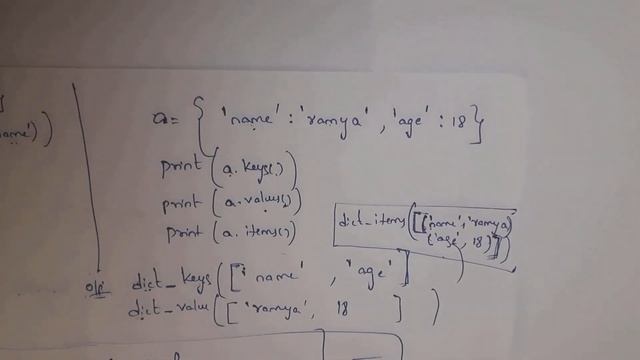 ame'))
a = { 'name' : 'ramya' , 'age' : 18}
print (a.keys())
print (a.values())
print (a.items())
dict_items([('name','ramya)
('age', 18)])
o/p dict_keys(['name' , 'age'])
dict_value(['ramya', 18 ])